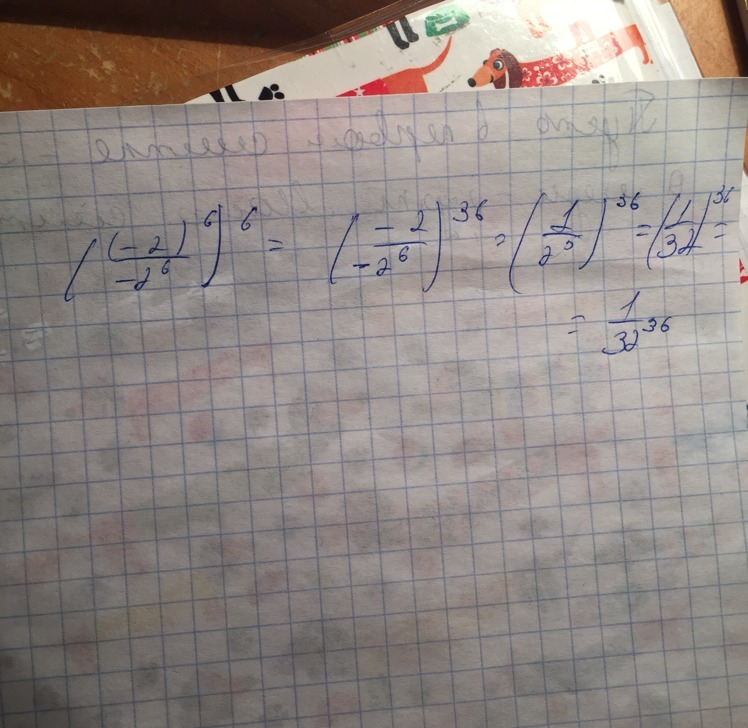 ((-2)/-2⁶)⁶)⁶ = (-2/-2⁶)³⁶ = (1/2⁵)³⁶ = (1/32)³⁶ =
= 1/32³⁶